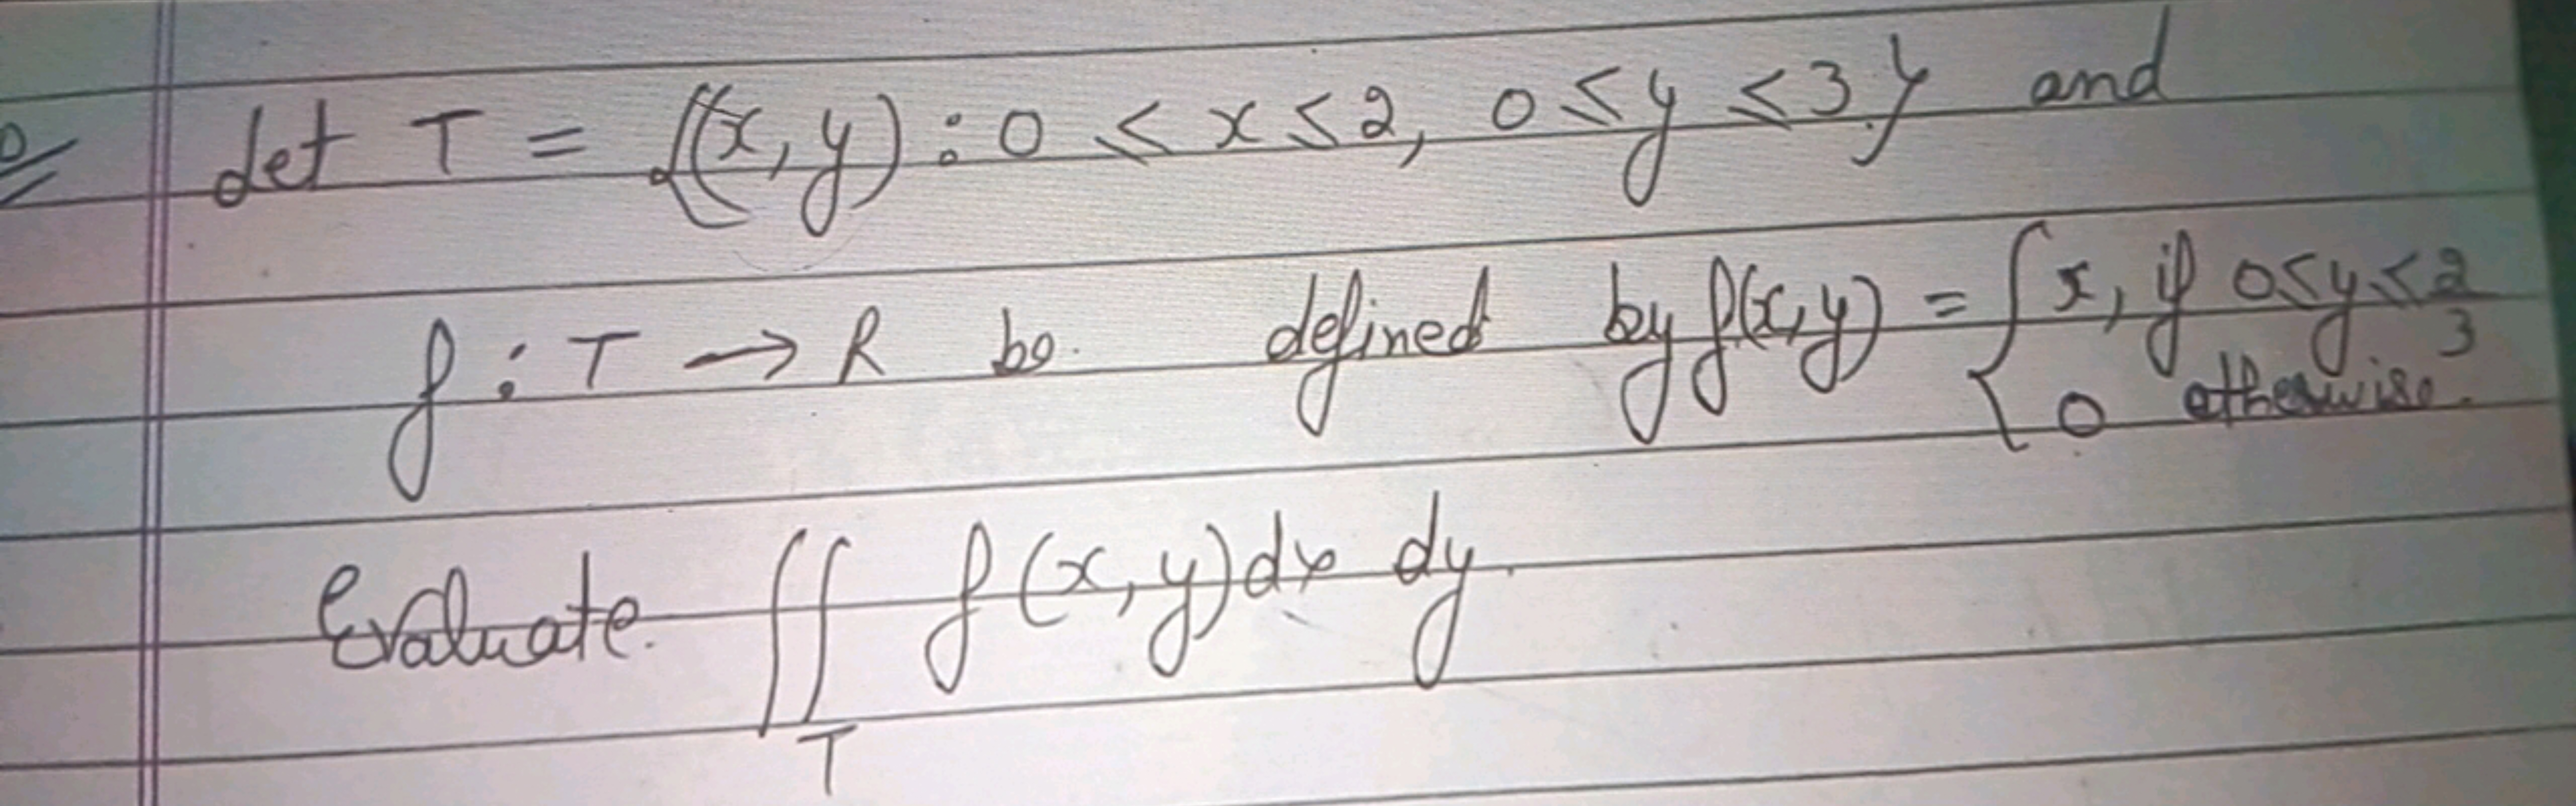 Q Let T = {(x, y) : 0 < x ≤ 2, 0 ≤ y ≤ 3} and
f : T → R be defined by f(x,y) = { x, if 0≤y≤2/3
0 otherwise.
Evaluate ∬ f(x,y)dx dy.
T